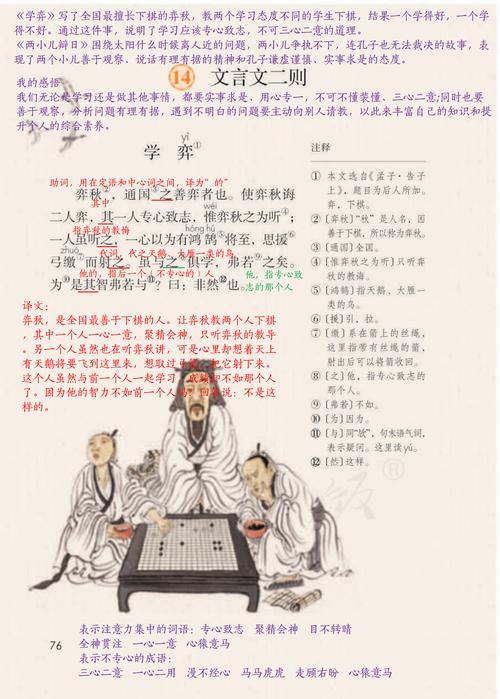 《学弈》写了全国最擅长下棋的弈秋，教两个学习态度不同的学生下棋，结果一个学得好，一个学
得不好。通过这件事，说明了学习应该专心致志，不可三心二意的道理。
《两小儿辩日》围绕太阳什么时候离人近的问题，两小儿争执不下，连孔子也无法裁决的故事，表
现了两个小儿善于观察、说话有理有据的精神和孔子谦虚谨慎、实事求是的态度。
我的感悟
我们无论是学习还是做其他事情，都要实事求是、用心专一，不可不懂装懂、三心二意;同时也要
善于观察，分析问题有理有据，遇到不明白的问题要主动向别人请教，以此来丰富自己的知识和提
升个人的综合素养。
14 文言文二则
yì
学 弈①
助词，用在定语和中心词之间，译为“的”
弈秋②，通国③之善弈者也。使弈秋诲
其中 wéi
二人弈，其一人专心致志，惟弈秋之为听④；
指弈秋的教诲 hóng hú
一人虽听之，一心以为有鸿鹄⑤将至，思援⑥
zhuó 代词，代之天鹅、大雁一类的鸟
弓缴⑦而射之。虽与之⑧俱学，弗若⑨之矣。
他的，指后一个（不专心的）人 他，指专心致
为⑩是其智弗若与⑪？曰：非然⑫也。 志的那个人
译文：
弈秋，是全国最善于下棋的人。让弈秋教两个人下棋
，其中一个人一心一意，聚精会神，只听弈秋的教导
。另一个人虽然也在听弈秋讲，可是心里却想着天上
有天鹅将要飞到这里来，想取过弓箭，把它射下来。
这个人虽然与前一个人一起学习，成绩却不如那个人
了。因为他的智力不如前一个人吗？回答说：不是这
样的。
注释
① 本文选自《孟子·告子
上》，题目为后人所加。
弈，下棋。
②〔弈秋〕“秋”是人名，因
善于下棋，所以称为弈秋。
③〔通国〕全国。
④〔惟弈秋之为听〕只听弈
秋的教诲。
⑤〔鸿鹄〕指天鹅、大雁一
类的鸟。
⑥〔援〕引，拉。
⑦〔缴〕系在箭上的丝绳，
这里指带有丝绳的箭，
射出后可以将箭收回。
⑧〔之〕他，指专心致志的
那个人。
⑨〔弗若〕不如。
⑩〔为〕因为。
⑪〔与〕同“欤”，句末语气词，
表示疑问。这里读yú。
⑫〔然〕这样。
表示注意力集中的词语：专心致志 聚精会神 目不转晴
全神贯注 一心一意 心猿意马
表示不专心的成语：
三心二意 一心二用 漫不经心 马马虎虎 走顾右盼 心猿意马
76